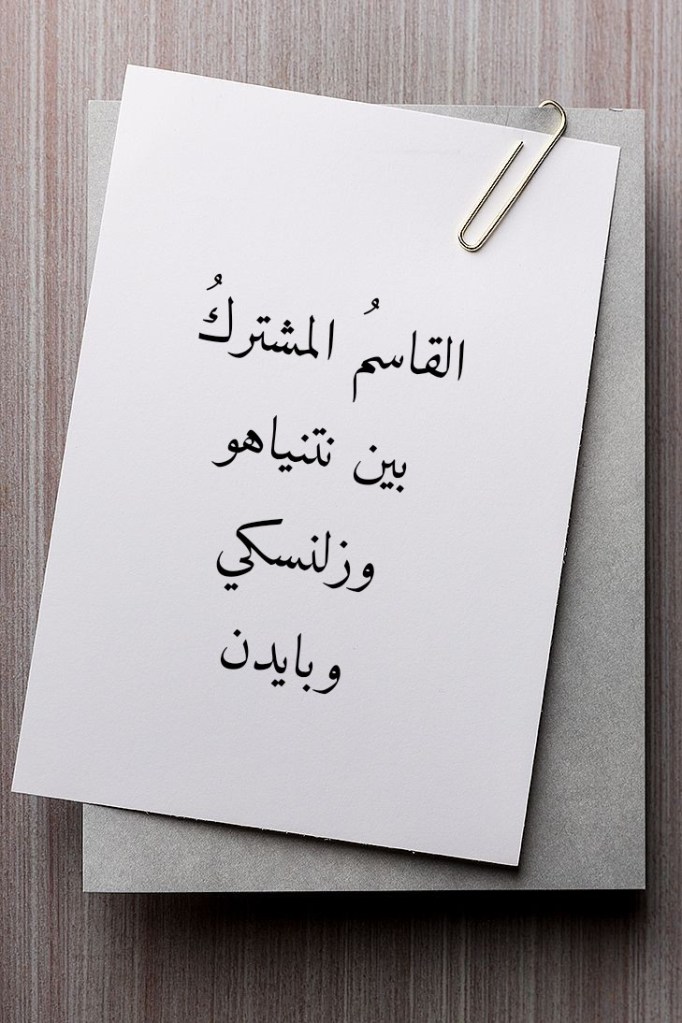 القاسمُ المشتركُ
بين نتنياهو
وزلنسكي
وبايدن